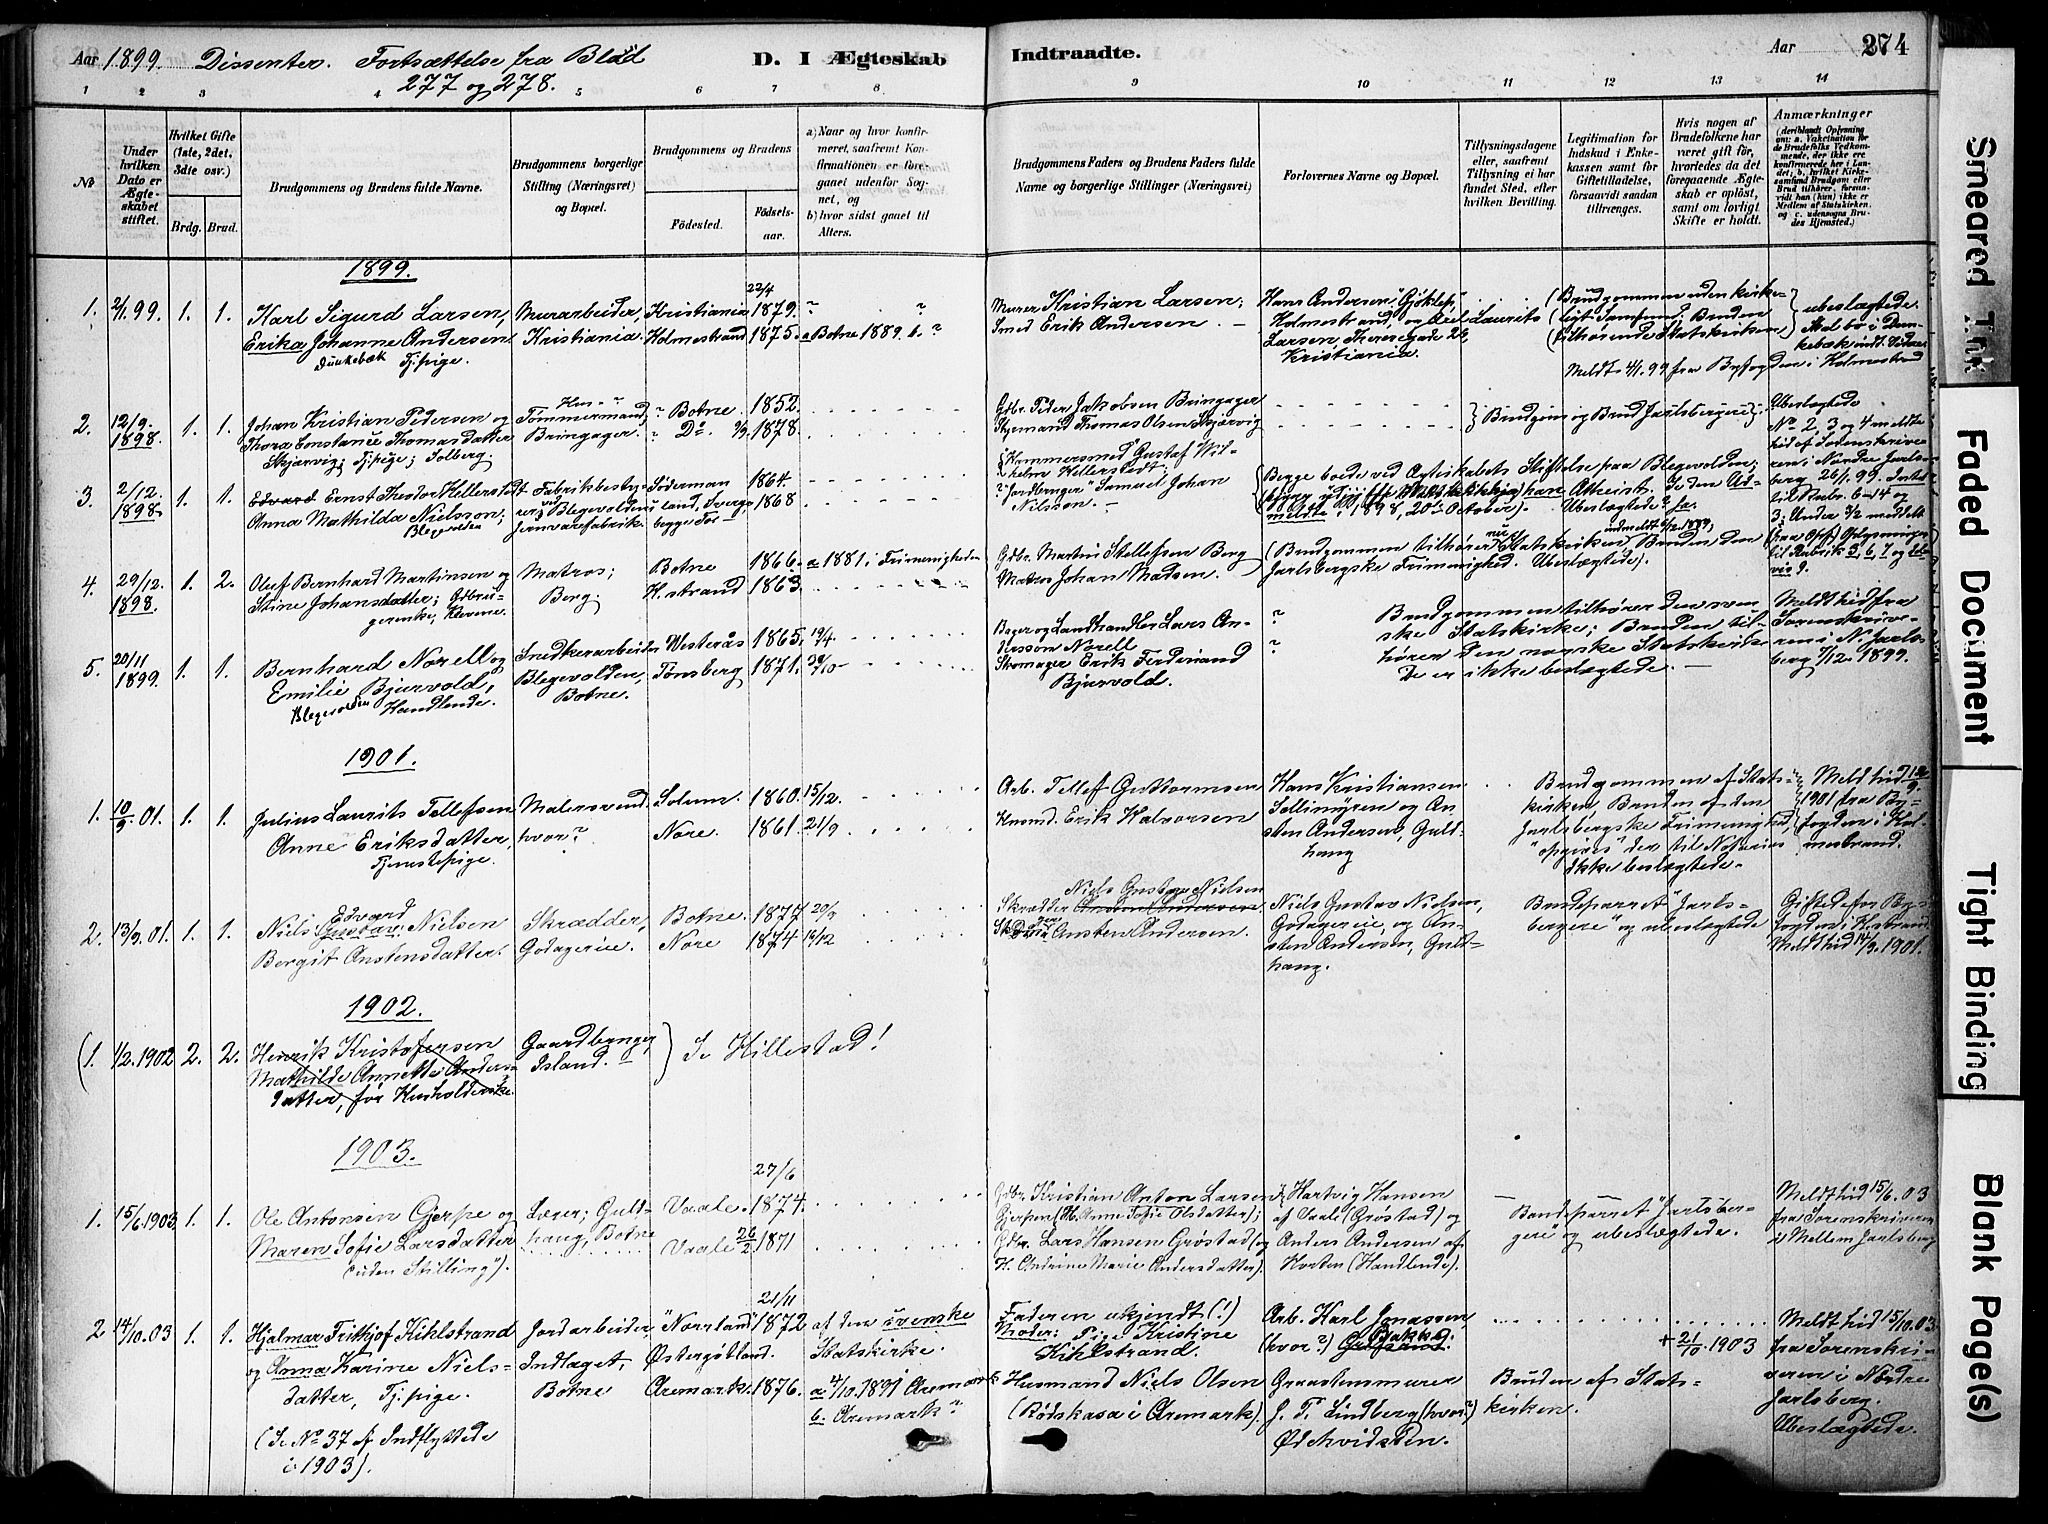 Aar 1899. Dissenter. Fortsættelse fra Blad 277 og 278.
D. I Ægteskab Indtraadte.
Aar 274
1 2 3 4 5 6 7 8 9 10 11 12 13 14
№
Under hvilken Dato er Ægteskabet stiftet.
Hvilket Gifte (1ste, 2det, 3die osv.)
Brdg. Brud.
Brudgommens og Brudens fulde Navne.
Brudgommens borgerlige Stilling (Næringsvei) og Bopæl.
Brudgommens og Brudens
Födested. Födsels-aar.
a) Naar og hvor konfirmeret, saafremt Konfirmationen er foregaaet udenfor Sognet, og
b) hvor sidst gaaet til Alters.
Brudgommens Faders og Brudens Faders fulde Navne og borgerlige Stillinger (Næringsvei)
Forlovernes Navne og Bopæl.
Tillysningsdagene eller, saafremt Tillysning ei har fundet Sted, efter hvilken Bevilling.
Legitimation for Indskud i Enkekassen samt for Giftetilladelse, forsaavidt sandan tiltrænges.
Hvis nogen af Brudefolkene har været gift før, hvorledes da det foregaaende Ægteskab er oplöst, samt om lovligt Skifte er holdt.
Anmærkninger
(deriblandt Oplysning om: a. Vakcination for de Brudefolks Vedkommende, der ikke ere konfirmerede her i Landet; b. hvilket Kirkesamfund Brudgom eller Brud tilhörer, forsaavidt han (hun) ikke er Medlem af Statskirken, og c. udensogns Brudes Hjemsted.)
1899.
1. 2/1. 99. 1. 1.
Karl Sigurd Larsen,
Erika Johanne Andersen
Dunkebæk Tj.pige.
Murarbeider,
Kristiania.
Kristiania
Holmestrand
22/4
1879.
1875.
? ?
a Botne 1889. b. ?
Murer Kristian Larsen;
Smed Erik Andersen. —
Hans Andersen "Gjøklep",
Holmestrand, og Axel Laurits
Larsen, Theresegade 26,
Kristiania.
(Brudgommen uden kirke-
ligt Samfund, Bruden
tilhørende Statskirken
ubeslægtede.
Skal bo i Dun-
kebæk
Meldt 4/1. 99 fra Byfogden i Holmestrand
2. 12/9. 1898. 1. 1.
Johan Kristian Pedersen og
Thora Constance Thomasdatter
Skjærvig; Tj.pige; Solberg.
Tømmermand,
Bringager.
Botne.
Do.
1852.
1878.
Gbr. Peder Jakobsen Bringager
Styrmand Thomas Olsen Skjærvig
} Brudgom og Brud Jarlsbergere;
Ubeslægtede
No 2, 3 og 4 meldte
hid af Sorenskrive-
ren i Nordre Jarls-
berg 26/1. 99.
3. 2/12. 1898. 1. 1.
Edvard Ernst Theodor Hellerstedt
Anna Mathilda Nielsson;
Blegevolden
Fabriksbesty-
rer; Blegevolden
Jernvarefabrik.
Söderman-
land, Sverge
begge For
1864.
1868
Hammersmed Gustaf Wil-
helm Hellerstedt;
"Jordbruger" Samuel Johan
Nilsson. —
(Begge boede ved Ægteskabets Stiftelse paa Blegevolden;
han Atheist.
1898, 20de October).
Ubeslægtede? Ja.
til Rubr. 6-14 og
3: Under 3/2 meddelt
til Rubrik 5, 6, 7 og
4. 29/12. 1898. 1. 2.
Oluf Bernhard Martinsen og
Stine Johansdatter; Gdbru-
gerenke, Klevene.
Matros;
Berg.
Botne
H.strand
1866.
1863.
a 1881 i Frimenigheden
Gdbr. Martin Stellefsen Berg
Matros Johan Madsen.
(Brudgommen tilhører nu Statskirken Bruden den
Jarlsbergske Frimenighed. Ubeslægtede).
5. 20/11 1899. 1. 1.
Bernhard Norell og
Emilie Bjurvold,
Blegevolden Handlende.
Snedkerarbeider
Blegevolden,
Botne.
Westerås
Tønsberg
1865. 19/4.
1871. 30/10
Bager og Landhandler Lars An-
dersson Norell
Skomager Erik Ferdinand
Bjurvold.
?
?
Brudgommen tilhører den sven-
ske Statskirke; Bruden til-
hører den norske Statskirke.
De er ikke beslægtede. —
Meldt hid fra
Sorenskrive-
ren i N. Jarls-
berg 7/12. 1899.
1901.
1. 10/9. 01. 1. 1.
Julius Laurits Tellefsen
Anne Eriksdatter,
Tjenestepige.
Malersvend
hvor?
Solum.
Nore.
1860. 15/12.
1861. 21/9
Arb. Tellef Guttormsen
Husmd. Erik Halvorsen
Hans Kristiansen
Sollimyren og An-
sten Andersen, Guld-
haug
Brudgommen af Stats-
kirken Bruden af den
Jarlsbergske Frimenighed,
"opgives" der til Notarius
Ikke beslægtede.
Meldt hid
1901 fra By-
fogden i Hol-
mestrand.
2. 13/9. 01. 1. 1.
Niels Edvard Gustav Nielsen
Bergit Anstensdatter.
Skrædder,
Godagerie.
Botne.
Nore
1877 20/9
1874 16/12
Skrædder Niels Gustav Nielsen
Ansten Andersen.
Niels Gustav Nielsen,
Godagerie, og An-
sten Andersen, Guld-
haug.
Brudeparret "Jarls-
bergere" og ubeslægtede
Giftede for By-
fogden i H.strand
Meldt hid 14/9. 1901.
1902.
(1. 1/2. 1902 2. 2.
Henrik Kristofersen
Mathilde Annette Anders-
datter, før Husholderske.
Gaardbruger,
Island.
} Se Hillestad!
1903.
1. 15/6. 1903. 1. 1.
Ole Antonsen Gjerpe og
Maren Sofie Larsdatter
("uden Stilling").
Læger; Guld-
haug, Botne
Vaale.
Vaale
27/6
1874.
26/2 1871
Gdbr. Kristian Anton Larsen
Gjerpen (H. Anne Sofie Olsdatter);
Gdbr. Lars Hansen Grøstad (og
H. Andrine Marie Andersdatter).
Hartvig Hansen
af Vaale (Grøstad) og
Anders Andersen af
Horten (Handlende).
Brudeparret "Jarlsber-
gere" og ubeslægtede.
Meldt hid 15/6. 03
fra Sorenskriveren
i Mellem Jarlsberg
2 14/10. 03 1. 1.
Hjalmar Frithjof Kihlstrand
og Anna Karine Niels-
datter, Tj.pige.
(Se No 37 af Indflyttede
i 1903).
Jordarbeider,
Indlaget,
Botne
"Norrland"
Østergøtland.
Aremark.
21/11
1872
1876.
af den svenske
Statskirke.
a 4/10. 1891 Aremark
b. Aremark?
Faderen ukjendt (!)
Moder: Pige Kristine
Kihlstrand.
Husmand Niels Olsen
(Rødskasa i Aremark).
Arb. Karl Jonassen,
(hvor?)
Graastensmurer
J. P. Lindberg (hvor?)
Ødekvidsten.
+ 21/10. 1903
Bruden af Stats-
kirken.
Meldt hid 15/10. 03
fra Sorenskri-
veren i Nordre
Jarlsberg.
Ubeslægtede.
Smeared Ink
Faded Document
Tight Binding
Blank Page(s)